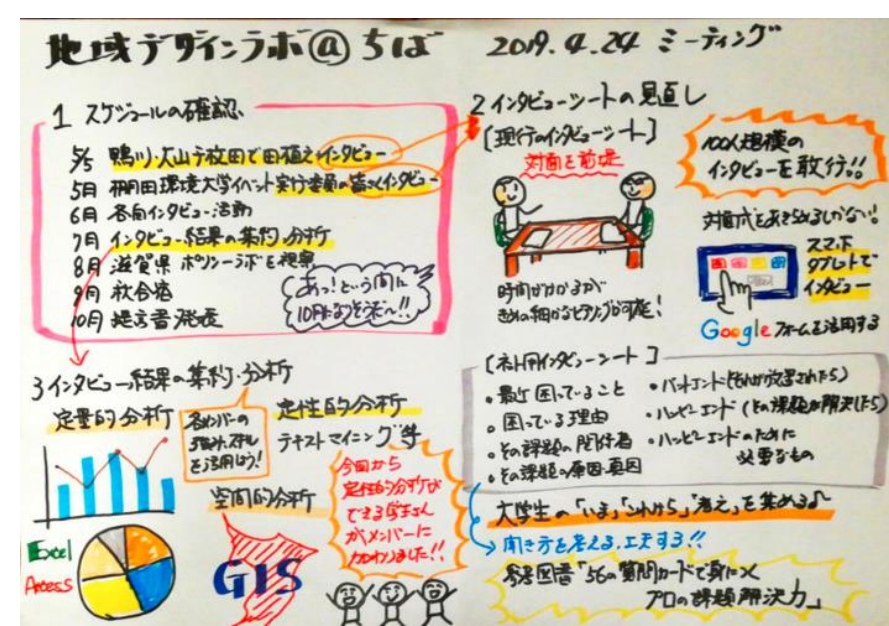 地域デザインラボ@ちば 2019.4.24 ミーティング
1 スケジュールの確認
5/5 鴨川・大山千枚田で田植え・インタビュー
5月 棚田環境大学イベント実行委員の皆さんインタビュー
6月 各自インタビュー活動
7月 インタビュー結果の集約・分析
8月 滋賀県 ポリシーラボを視察
9月 秋合宿
10月 提言書発表
あっ!という間に
10月になりそうだ〜!!
2 インタビューシートの見直し
[現行のインタビューシート]
対面を前提
時間がかかるが
きめの細かなヒアリングが可能!
100人規模の
インタビューを敢行!!
対面式をあきらめるしかない!
スマホ
タブレットで
インタビュー
Googleフォームを活用する
[ネット用インタビューシート]
・最近困っていること
・困っている理由
・その課題の関係者
・その課題の原因・真因
・バットエンド(それが放置されたら)
・ハッピーエンド(その課題が解決したら)
・ハッピーエンドのために
必要なもの
大学生の「いま」「これから」「考え」を集める♪
聞き方を考える、工夫する!!
参考図書「56の質問カードで身につく
プロの課題解決力」
3 インタビュー結果の集約・分析
定量的分析
各メンバーの
スキル
を活用しよう!
定性的分析
テキストマイニング等
空間的分析
GIS
今回から
定性的分析が
できる学生さん
がメンバーに
加わりました!!
Excel
Access